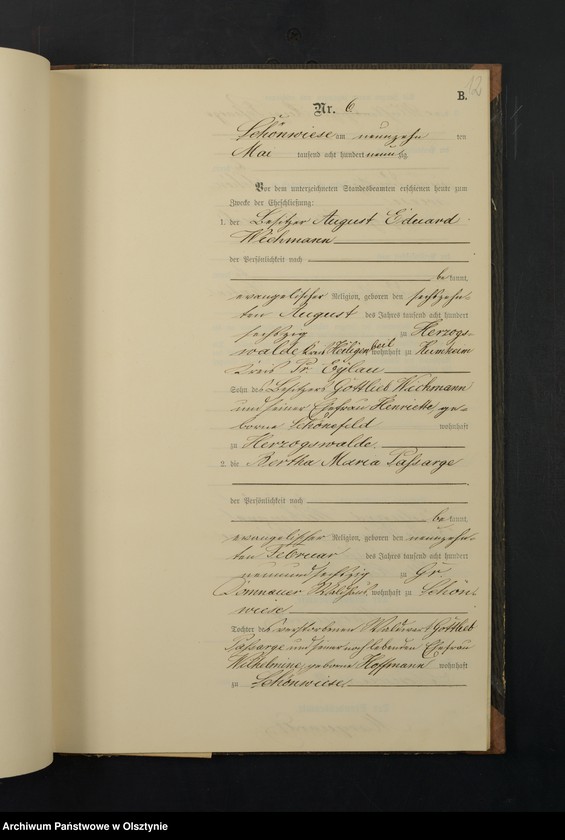 12
B.
Nr. 6
Schönwiese am neunzehn ten
Mai tausend acht hundert neunzig.
Vor dem unterzeichneten Standesbeamten erschienen heute zum
Zwecke der Eheschließung:
1. der Besitzer August Eduard
Wichmann
der Persönlichkeit nach
be kannt,
evangelischer Religion, geboren den sechszehn-
ten August des Jahres tausend acht hundert
sechszig zu Herzogs-
walde Kreis Heiligenbeil wohnhaft zu Kumkeim
Kreis Pr. Eylau
Sohn des Besitzers Gottlieb Wichmann
und seiner Ehefrau Henriette ge-
borne Schönefeld wohnhaft
zu Herzogswalde.
2. die Bertha Maria Passarge
der Persönlichkeit nach
be kannt,
evangelischer Religion, geboren den neunzehn-
ten Februar des Jahres tausend acht hundert
neunundsechszig zu Gr.
Domnauer Waldhaus, wohnhaft zu Schön-
wiese
Tochter des verstorbenen Waldwart Gottlieb
Passarge und seiner noch lebenden Ehefrau
Wilhelmine, geborne Hoffmann wohnhaft
zu Schönwiese.
Archiwum Państwowe w Olsztynie